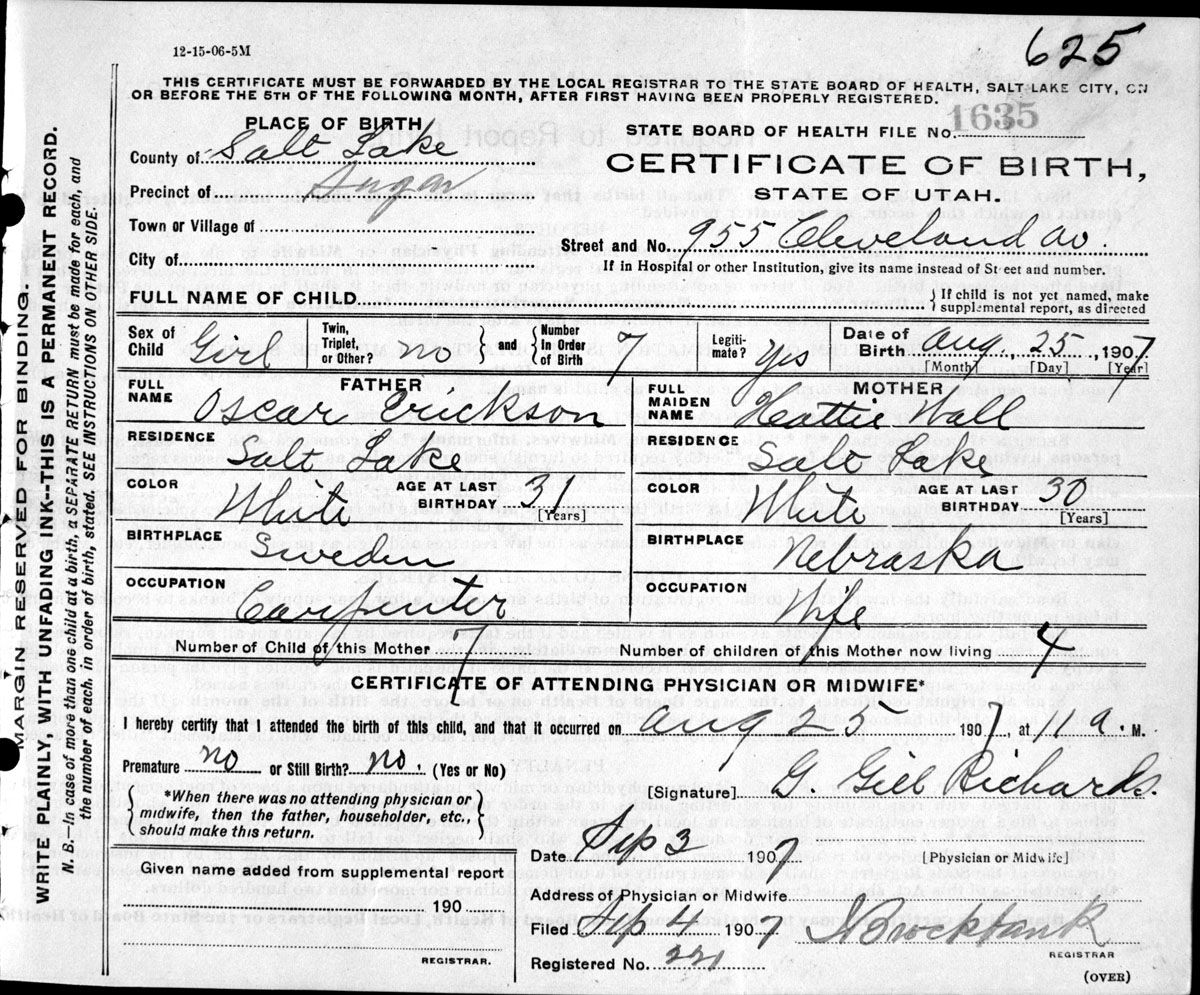 12-15-06-5M
625
THIS CERTIFICATE MUST BE FORWARDED BY THE LOCAL REGISTRAR TO THE STATE BOARD OF HEALTH, SALT LAKE CITY, ON
OR BEFORE THE 5TH OF THE FOLLOWING MONTH, AFTER FIRST HAVING BEEN PROPERLY REGISTERED.
PLACE OF BIRTH
STATE BOARD OF HEALTH FILE No. 1635
County of Salt Lake
CERTIFICATE OF BIRTH,
Precinct of Sugar
STATE OF UTAH.
Town or Village of
Street and No. 955 Cleveland Av.
City of
If in Hospital or other Institution, give its name instead of Street and number.
FULL NAME OF CHILD
} If child is not yet named, make supplemental report, as directed
Sex of Child Girl
Twin, Triplet, or Other? no
} and { Number In Order of Birth 7
Legiti-mate? yes
Date of Birth Aug. 25, 1907
[Month] [Day] [Year]
FATHER
FULL NAME Oscar Erickson
RESIDENCE Salt Lake
COLOR White
AGE AT LAST BIRTHDAY 31 [Years]
BIRTHPLACE Sweden
OCCUPATION Carpenter
MOTHER
FULL MAIDEN NAME Heattie Wall
RESIDENCE Salt Lake
COLOR White
AGE AT LAST BIRTHDAY 30 [Years]
BIRTHPLACE Nebraska
OCCUPATION Wife
Number of Child of this Mother 7
Number of children of this Mother now living 4
CERTIFICATE OF ATTENDING PHYSICIAN OR MIDWIFE*
I hereby certify that I attended the birth of this child, and that it occurred on Aug 25 1907, at 11 a. M.
Premature no or Still Birth? no. (Yes or No)
[Signature] G Gill Richards.
{ *When there was no attending physician or midwife, then the father, householder, etc., should make this return. }
Date Sep 3 1907 [Physician or Midwife]
Given name added from supplemental report
Address of Physician or Midwife
190
Filed Sep 4 1907 Brockbank
REGISTRAR.
REGISTRAR
Registered No. 221
(OVER)
MARGIN RESERVED FOR BINDING.
WRITE PLAINLY, WITH UNFADING INK--THIS IS A PERMANENT RECORD.
N. B.--In case of more than one child at a birth, a SEPARATE RETURN must be made for each, and
the number of each, in order of birth, stated. SEE INSTRUCTIONS ON OTHER SIDE.